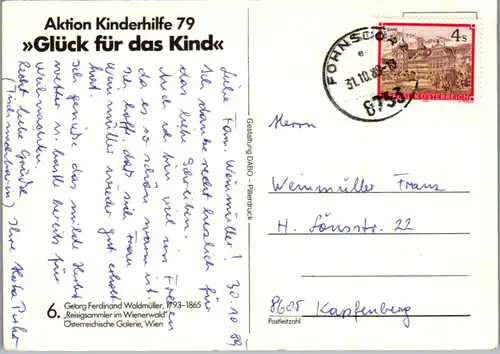 Aktion Kinderhilfe 79
»Glück für das Kind«
Liebe Fam. Weinmüller! 30.10.89
Ich danke recht herzlich für
das liebe Schreiben.
Auch ich bin viel im Freien
da es so schön warm ist.
Ich hoff, daß sich Frau
Weinmüller wieder gut erholt
hat.
Ich genieße das milde Herbst
wetter u. bastle bereits für
Weihnachten.
Recht liebe Grüße
Ihre
6. Georg Ferdinand Waldmüller, 1793–1865
„Reisigsammler im Wienerwald"
Österreichische Galerie, Wien
Gestaltung DABO – Pillerdruck
FOHNSDORF
e
31.10.89
8753
4s
REPUBLIK ÖSTERREICH
Herrn
Weinmüller Franz
H. Lönsstr. 22
8605 Kapfenberg
Postleitzahl